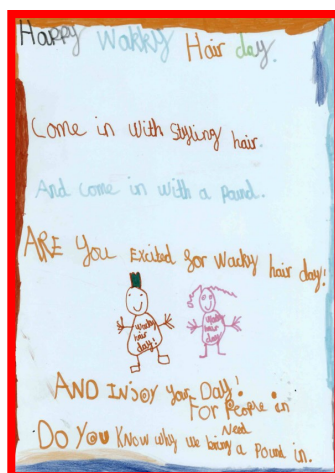 Happy Wakky Hair day.
Come in with styling hair.
And come in with a pound.
ARE You Excited for Wacky hair day!
Wacky
hair
day!
Wacky
hair
day!
AND Injoy Your Day!
For People in
Need
Do You Know why we bring a Pound in.